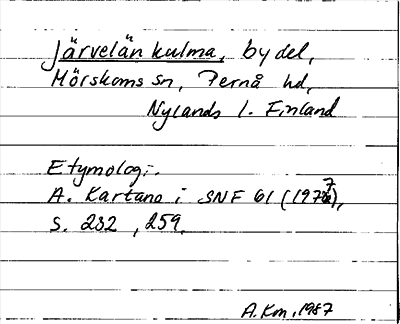 Järvelän kulma, bydel,
Mörskoms sn, Pernå hd,
Nylands l. Finland
Etymologi.
A. Kartano i SNF 61 (1977),
s. 232, 259.
A.Km, 1987